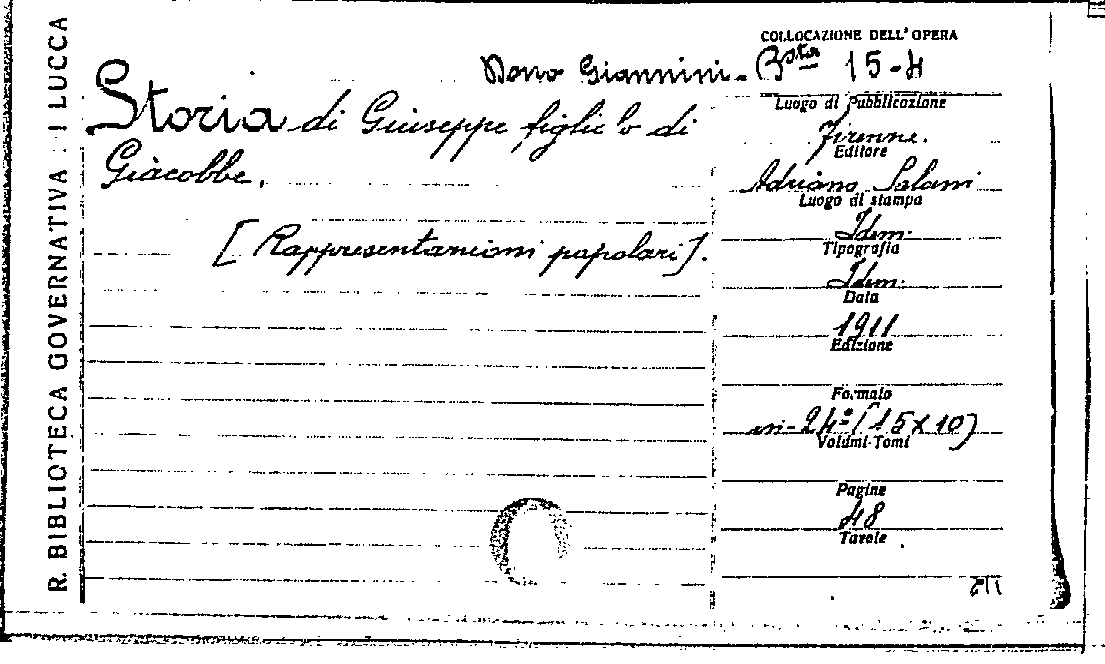 R. BIBLIOTECA GOVERNATIVA DI LUCCA
COLLOCAZIONE DELL'OPERA
Dono Giannini - Bsta 15-4
Storia di Giuseppe figliolo di
Giacobbe.
[Rappresentazioni popolari].
Luogo di Pubblicazione
Firenze.
Editore
Adriano Salani
Luogo di stampa
Idem.
Tipografia
Idem.
Data
1911
Edizione
Formato
in-24º (15x10)
Volumi-Tomi
Pagine
48
Tavole